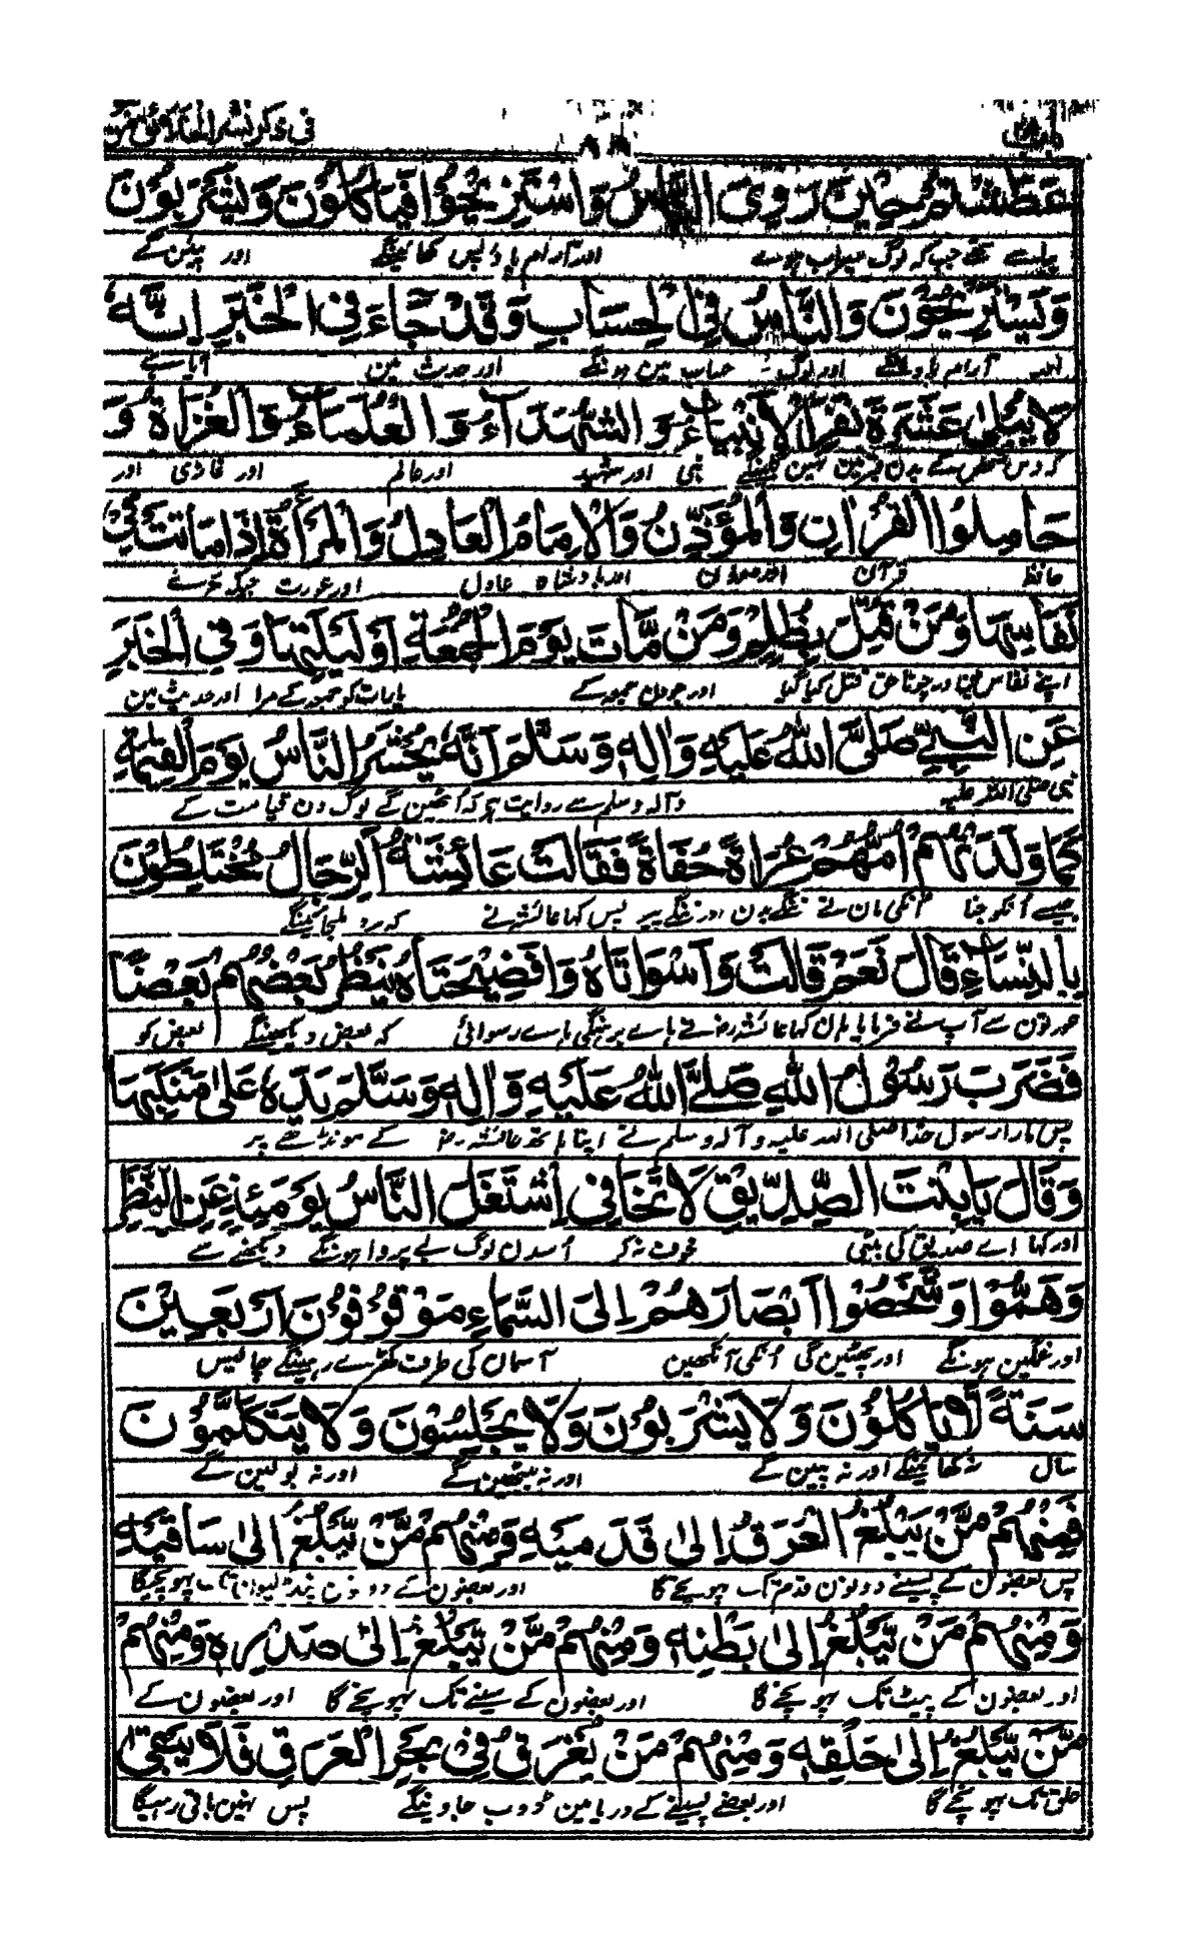 فی ذکر نشر الخلائق من
عَطَشْتُمْ حِيْنَ رَوِیَ النَّاسُ وَاسْتَرِيْحُوْا فَيَاكُلُوْنَ وَيَشْرَبُوْنَ
پیاسے تھے جب کہ لوگ سیراب ہوے اور آرام پاؤ پس کھائینگے اور پیئن گے
وَيَسْتَرِيْحُوْنَ وَالنَّاسُ فِي الْحِسَابِ وَقَدْ جَاءَ فِي الْخَبَرِ اِنَّهٗ
اور آرام پاوینگے اور لوگ حساب مین ہونگے اور حدیث مین آیا ہے
لَا يَبْلٰى عَشَرَةُ نَفَرٍ الْاَنْبِيَاءُ وَالشُّهَدَآءُ وَالْعُلَمَاءُ وَالْغُزَاةُ وَ
کہ دس شخص کے بدن قبر مین نہین گلینگے نبی اور شہید اور عالم اور غازی اور
حَامِلُوا الْقُرْاٰنِ وَالْمُؤَذِّنُ وَالْاِمَامُ الْعَادِلُ وَالْمَرْأَةُ اِذَا مَاتَتْ فِيْ
حافظ قرآن اور موذن اور بادشاہ عادل اور عورت جبکہ مرے
نِفَاسِهَا وَمَنْ قُتِلَ بِظُلْمٍ وَمَنْ مَّاتَ يَوْمَ الْجُمُعَةِ اَوْ لَيْلَتِهَا وَفِي الْخَبَرِ
اپنے نفاس مین اور جو ناحق قتل کیا گیا اور جو دن جمعہ کے یا رات کو جمعہ کے مرا اور حدیث مین
عَنِ النَّبِيِّ صَلَّى اللّٰهُ عَلَيْهِ وَاٰلِهٖ وَسَلَّمَ اَنَّهٗ يُحْشَرُ النَّاسُ يَوْمَ الْقِيٰمَةِ
نبی صلی اللہ علیہ وآلہ وسلم سے روایت ہر کہ اُٹھین گے لوگ دن قیامت کے
كَمَا وَلَدَتْهُمْ اُمُّهُمْ عُرَاةً حُفَاةً فَقَالَتْ عَائِشَةُ اَلرِّجَالُ مُخْتَلِطُوْنَ
جیسے اُنکو جنا اُنکی مان نے ننگے بدن اور ننگے پیر پس کہا عائشہ نے کہ مرد ملجائینگے
بِالنِّسَاءِ قَالَ نَعَمْ قَالَتْ وَاسَوْاَتَاهُ وَافَضِيْحَتَاهُ يَنْظُرُ بَعْضُهُمْ بَعْضًا
عورتون سے آپ نے فرمایا ہان کہا عائشہ رض نے ہاے برہنگی ہاے رسوائی کہ بعض دیکھینگے بعض کو
فَضَرَبَ رَسُوْلُ اللّٰهِ صَلَّى اللّٰهُ عَلَيْهِ وَاٰلِهٖ وَسَلَّمَ يَدَهٗ عَلٰى مَنْكِبِهَا
پس مارا رسول خدا صلی اللہ علیہ وآلہ وسلم نے اپنا ہاتھ عائشہ رض کے مونڈھے پر
وَقَالَ يَا بِنْتَ الصِّدِّيْقِ لَا تَخَافِيْ اِشْتَغَلَ النَّاسُ يَوْمَئِذٍ عَنِ النَّظَرِ
اور کہا اے صدیق کی بیٹی خوف نہ کر اُسدن لوگ بے پروا ہونگے دیکھنے سے
وَهَمُّوْا وَشَخَصُوْا اَبْصَارَهُمْ اِلَى السَّمَاءِ مَوْقُوْفُوْنَ اَرْبَعِيْنَ
اور غمگین ہونگے اور پھٹین گی اُنکی آنکھین آسمان کی طرف کھڑے رہینگے چالیس
سَنَةً لَا يَاكُلُوْنَ وَلَا يَشْرَبُوْنَ وَلَا يَجْلِسُوْنَ وَلَا يَتَكَلَّمُوْنَ
سال نہ کھائینگے اور نہ پیین گے اور نہ بیٹھین گے اور نہ بولین گے
فَمِنْهُمْ مَّنْ يَبْلُغُ الْعَرَقُ اِلٰى قَدَمَيْهِ وَمِنْهُمْ مَّنْ يَّبْلُغُ اِلٰى سَاقَيْهِ
پس بعضون کے پسینے دونون قدم تک پہونچے گا اور بعضون کے دونون پنڈلیون تک پہونچیگا
وَمِنْهُمْ مَنْ يَّبْلُغُ اِلٰى بَطْنِهٖ وَمِنْهُمْ مَّنْ يَّبْلُغُ اِلٰى صَدْرِهٖ وَمِنْهُمْ
اور بعضون کے پیٹ تک پہونچے گا اور بعضون کے سینے تک پہونچے گا اور بعضون کے
مَّنْ يَّبْلُغُ اِلٰى حَلْقِهٖ وَمِنْهُمْ مَنْ يَغْرَقُ فِيْ بَحْرِ الْعَرَقِ فَلَا يَبْقٰى
حلق تک پہونچے گا اور بعضے پسینے کے دریا مین ڈوب جاوینگے پس نہین باقی رہیگا